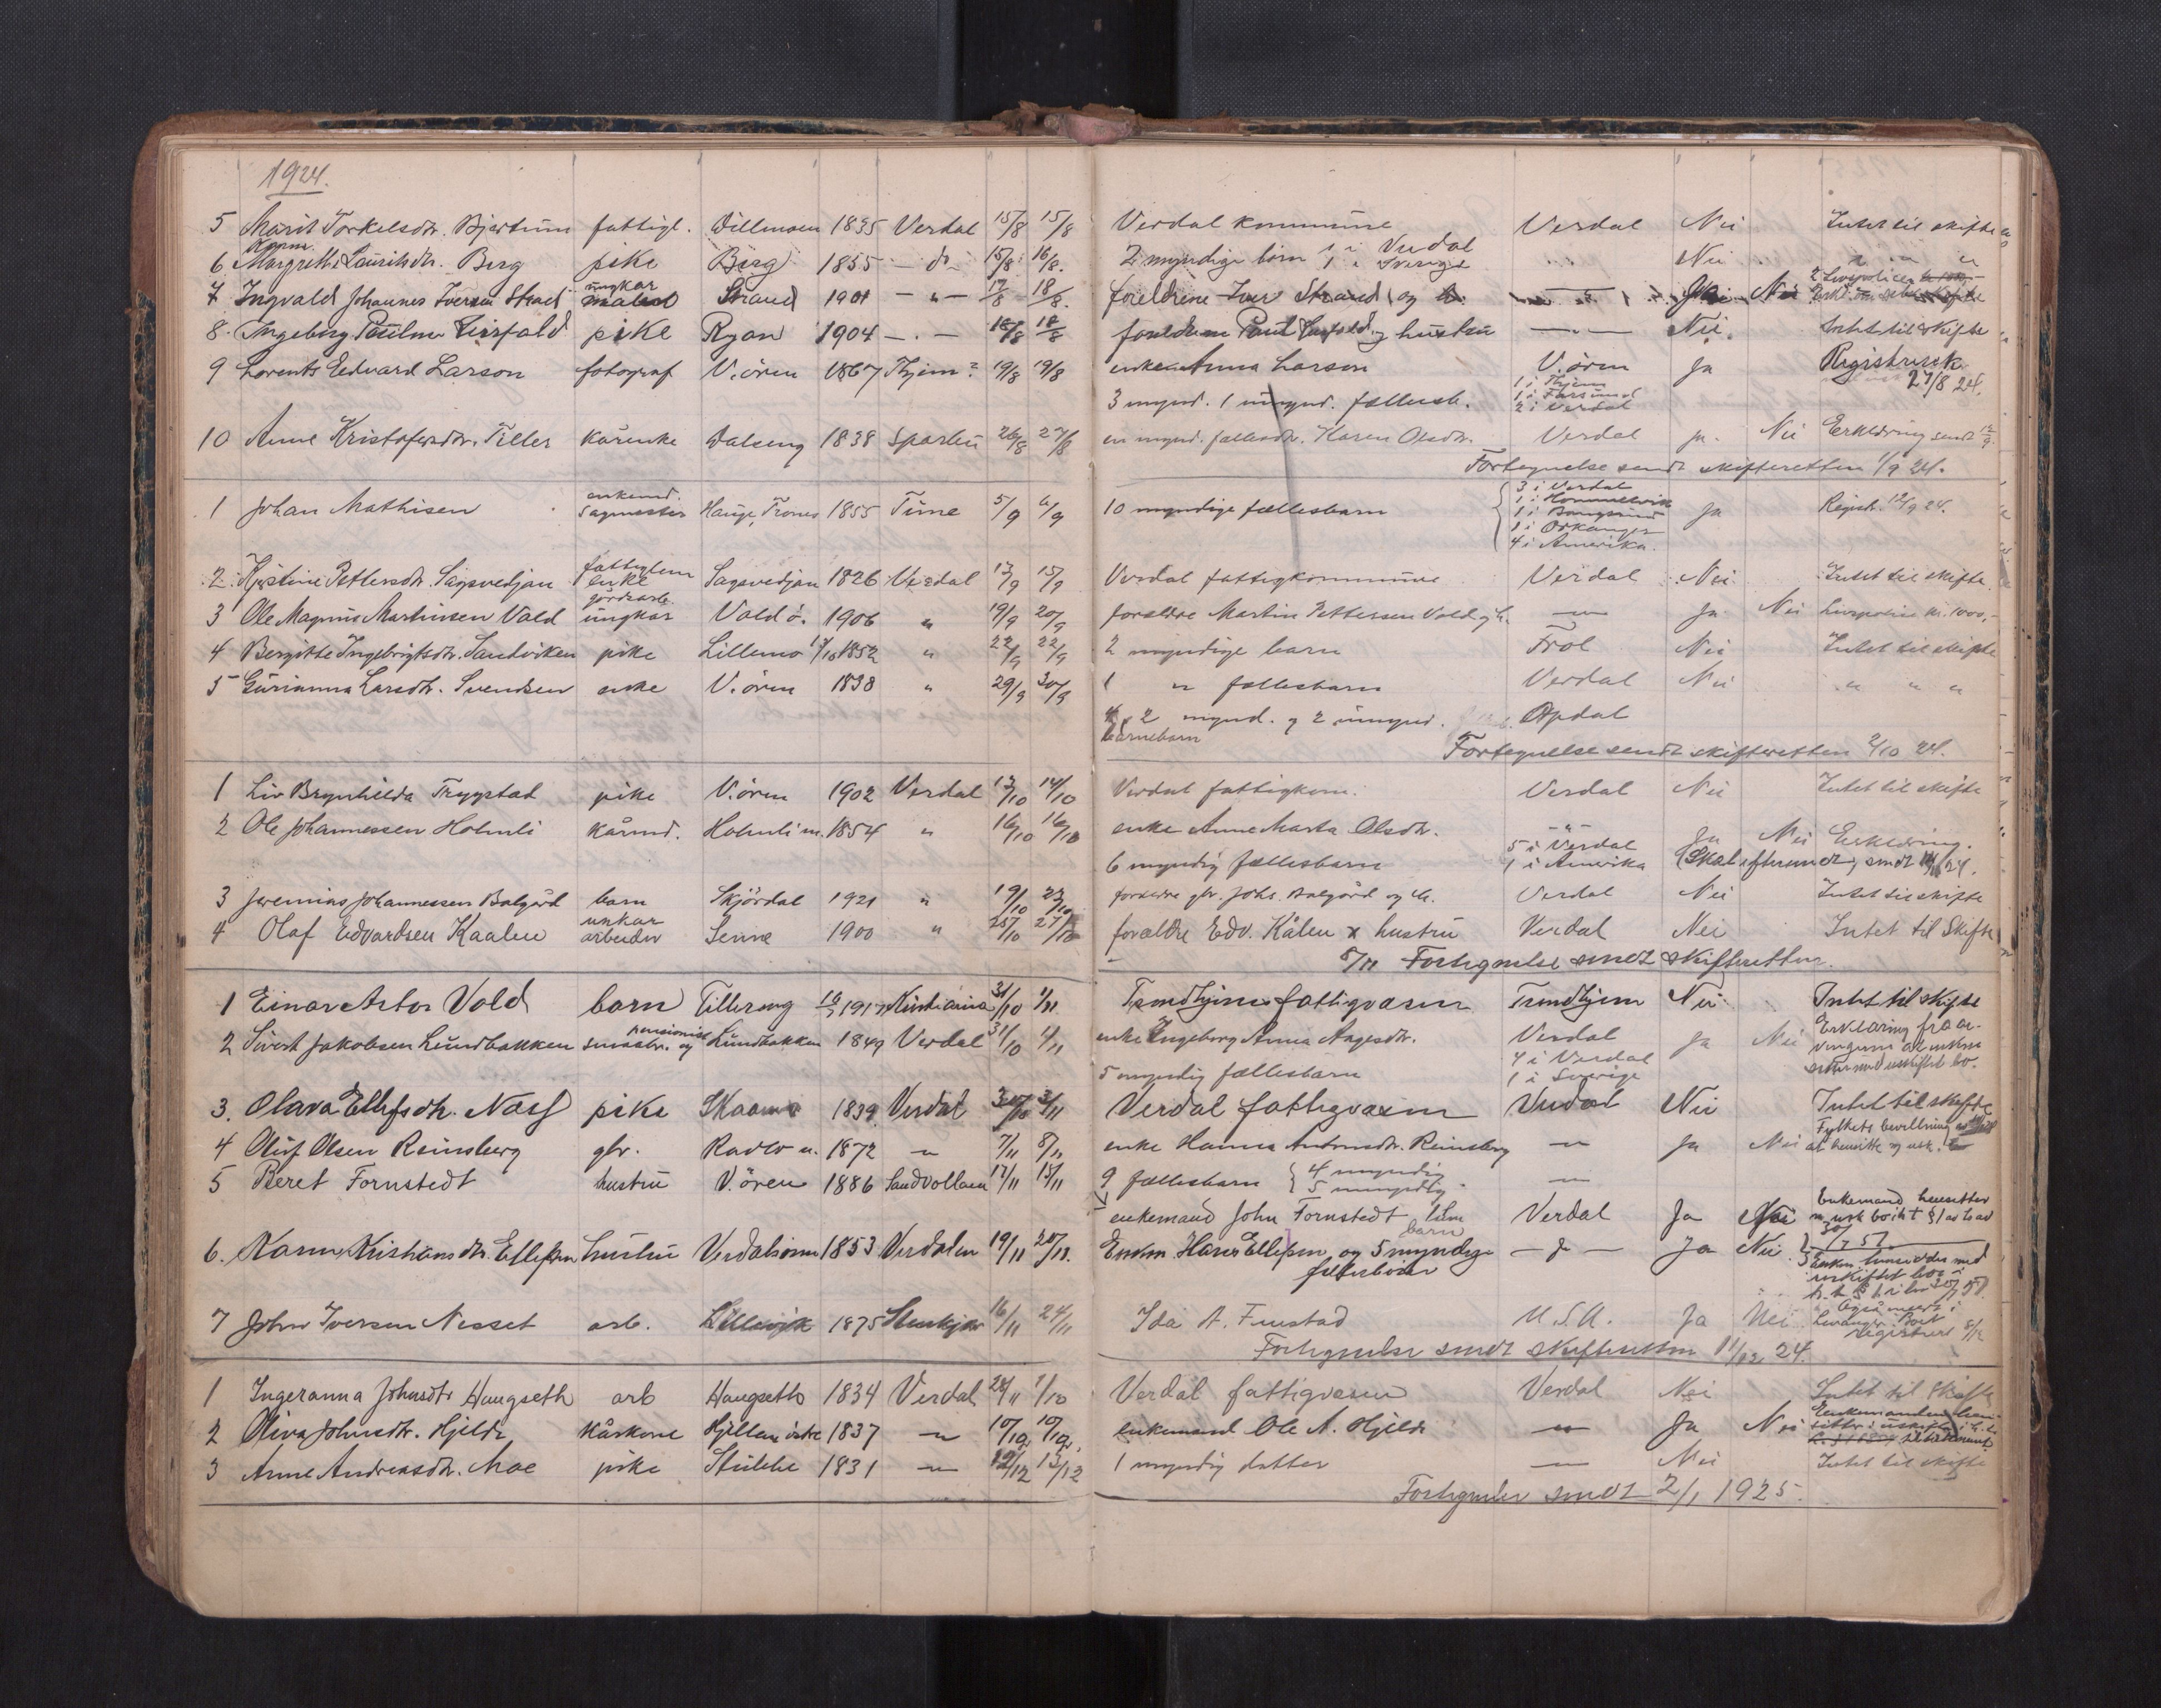 1924.
5 Marit Torkelsdtr. Bjartum fattigl. Dillmoen 1835 Verdal 15/8 15/8 Verdal kommune Verdal Nei Intet til skifte
6 Margrethe Lauritsdtr. Berg pike Berg 1855 — d — 15/8 16/8. 2 myndige börn 1 i Verdal 1 i Sverige " Nei " " "
7 Ingvald Johannes Iversen Strand ungkar Strand 1901 — " — 17/8 18/8. foreldrene Iver Strand og — " — Ja Nei
8. Ingeborg pike Ryan 1904 — . — 18/8 18/8 foreldrene Paul og hustru — " — Nei. Intet til skifte
9 Lorents Edvard Larson fotograf V.ören 1867 Thjem? 19/8 19/8 enke Anna Larson V.ören Ja Registr.
27/8 24.
3 mynd. 1 umynd. fællesb. 1 i Thjem
1 i Farsund
2 i Verdal
10 Anne Kristofersdtr. Tiller kårenke Dalseng 1838 Sparbu 26/8 27/8 en mynd. fællesdtr. Karen Olsdtr. Verdal ja. Nei Erklæring sendt 12/9.
Fortegnelse sendt skifteretten 1/9 24.
1 Johan Mathisen enkemd. sagmester Hauge, Trones 1855 Time 5/9 6/9 10 myndige fællesbarn Ja Registr. 12/9 24.
3 i Verdal
1 i Hommelvik
1 i Bangsund
1 i Orkanger
4 i Amerika.
2 Kjerstine Pettersdtr. Sagvedjan fattiglem enke Sagvedjan 1826 Verdal 13/9 15/9 Verdal fattigkommune Verdal Nei Intet til skifte
3 Ole Magnus Martinsen Vold gårdsarb. ungkar Vold ö. 1906 " 19/9 20/9 forældre Martin Pettersen Vold og h. — " — Ja Nei Livspolise kr. 1000,-
4 Bergitte Ingebrigtsdtr. Sandviken pike Lillemo 1852 " 22/9 22/9 2 myndige barn Frol Nei Intet til skifte
5 Gurianna Larsdtr. Svendsen enke V.ören 1838 " 29/9 30/9 1 " fællesbarn Verdal Nei " " "
2 mynd. og 2 umynd. Opdal
barnebarn
Fortegnelse sendt skifteretten 2/10 24.
1 Liv Brynhilda Trygstad pike V.ören 1902 Verdal 13/10 14/10 Verdal fattigkom. Verdal Nei Intet til skifte
2 Ole Johannessen Holmli kårmd. Holmli m. 1854 " 16/10 16/10 enke Anne Marta Olsdtr. — " — Ja Nei Erklæring.
6 myndig fællesbarn 5 i Verdal
1 i Amerika
3 Jeremias Johannessen Balgård barn Skjördal 1921 " 19/10 23/10 forældre gbr. Johs. Balgård og h. Verdal Nei Intet til skifte
4 Olaf Edvardsen Kaalen unkar arbeider Senne 1900 " 25/10 27/10 forældre Edv. Kålen x hustru Verdal Nei Intet til Skifte
8/11 Fortegnelse sendt skifteretten.
1 Einar Artor Vold barn Tillereng 1917 Kristiania 31/10 1/11 Trondhjems fattigvæsen Trondhjem Nei Intet til skifte
2 Sivert Jakobsen Lundbakken pensionist og småbr. Lundbakken 1849 Verdal 31/10 1/11 enke Ingeborg Anna Aagesdtr. Verdal Ja Nei Erklæring fra arvingerne at enken sitter med uskiftet bo.
5 myndig fællesbarn 4 i Verdal
1 i Sverige
3. Olava Ellefsdtr. Næss pike Skaanes 1839. Verdal 30/10 3/11 Verdal fattigvæsen Verdal Nei Intet til skifte
4 Oluf Olsen Reinsberg gbr. Radlv n. 1872 — " — 7/11 8/11 enke Hanna Antonsdtr. Reinsberg — " — Ja Nei Fylkets bevillning at hensitte i usk. bo
5 Beret Fornstedt hustru V.ören 1886 Sandvollan 17/11 15/11 9 fællesbarn { 4 myndig
5 umyndig — " —
enkemand John Fornstedt Verdal Ja Nei Enkemand hensitter m. usk bo
6. Karen Kristiansdtr. Ellefsen hustru Verdalsören 1853 Verdalen 19/11 20/11. Enkm. Hans Ellefsen og 5 myndige barn — " — Ja Nei.
7 John Iversen Nesset arb. Lillevik 1875 Stenkjer 16/11 24/11 Ida A. Fuustad U.S.A. Ja Nei. Også meldt i Levanger. Boet registrert 8/12
Fortegnelse sendt skifteretten 11/12 24.
1 Ingeranna Johnsdtr Haugseth arb Haugseth 1834 Verdal 28/11 1/10 Verdal fattigvæsen Verdal Nei Intet til Skifte
2 Oliva Johnsdtr. Hjelde Kårkone Hjellan östre 1837 — " — 10/12 10/12. enkemand Ole A. Hjelde — " — Ja Nei
3 Anne Andreasdtr. Moe pike Stubbe 1831 — " — 12/12 13/12 1 myndig datter — " — Nei Intet til skifte
Fortegnelse sendt 2/1 1925.